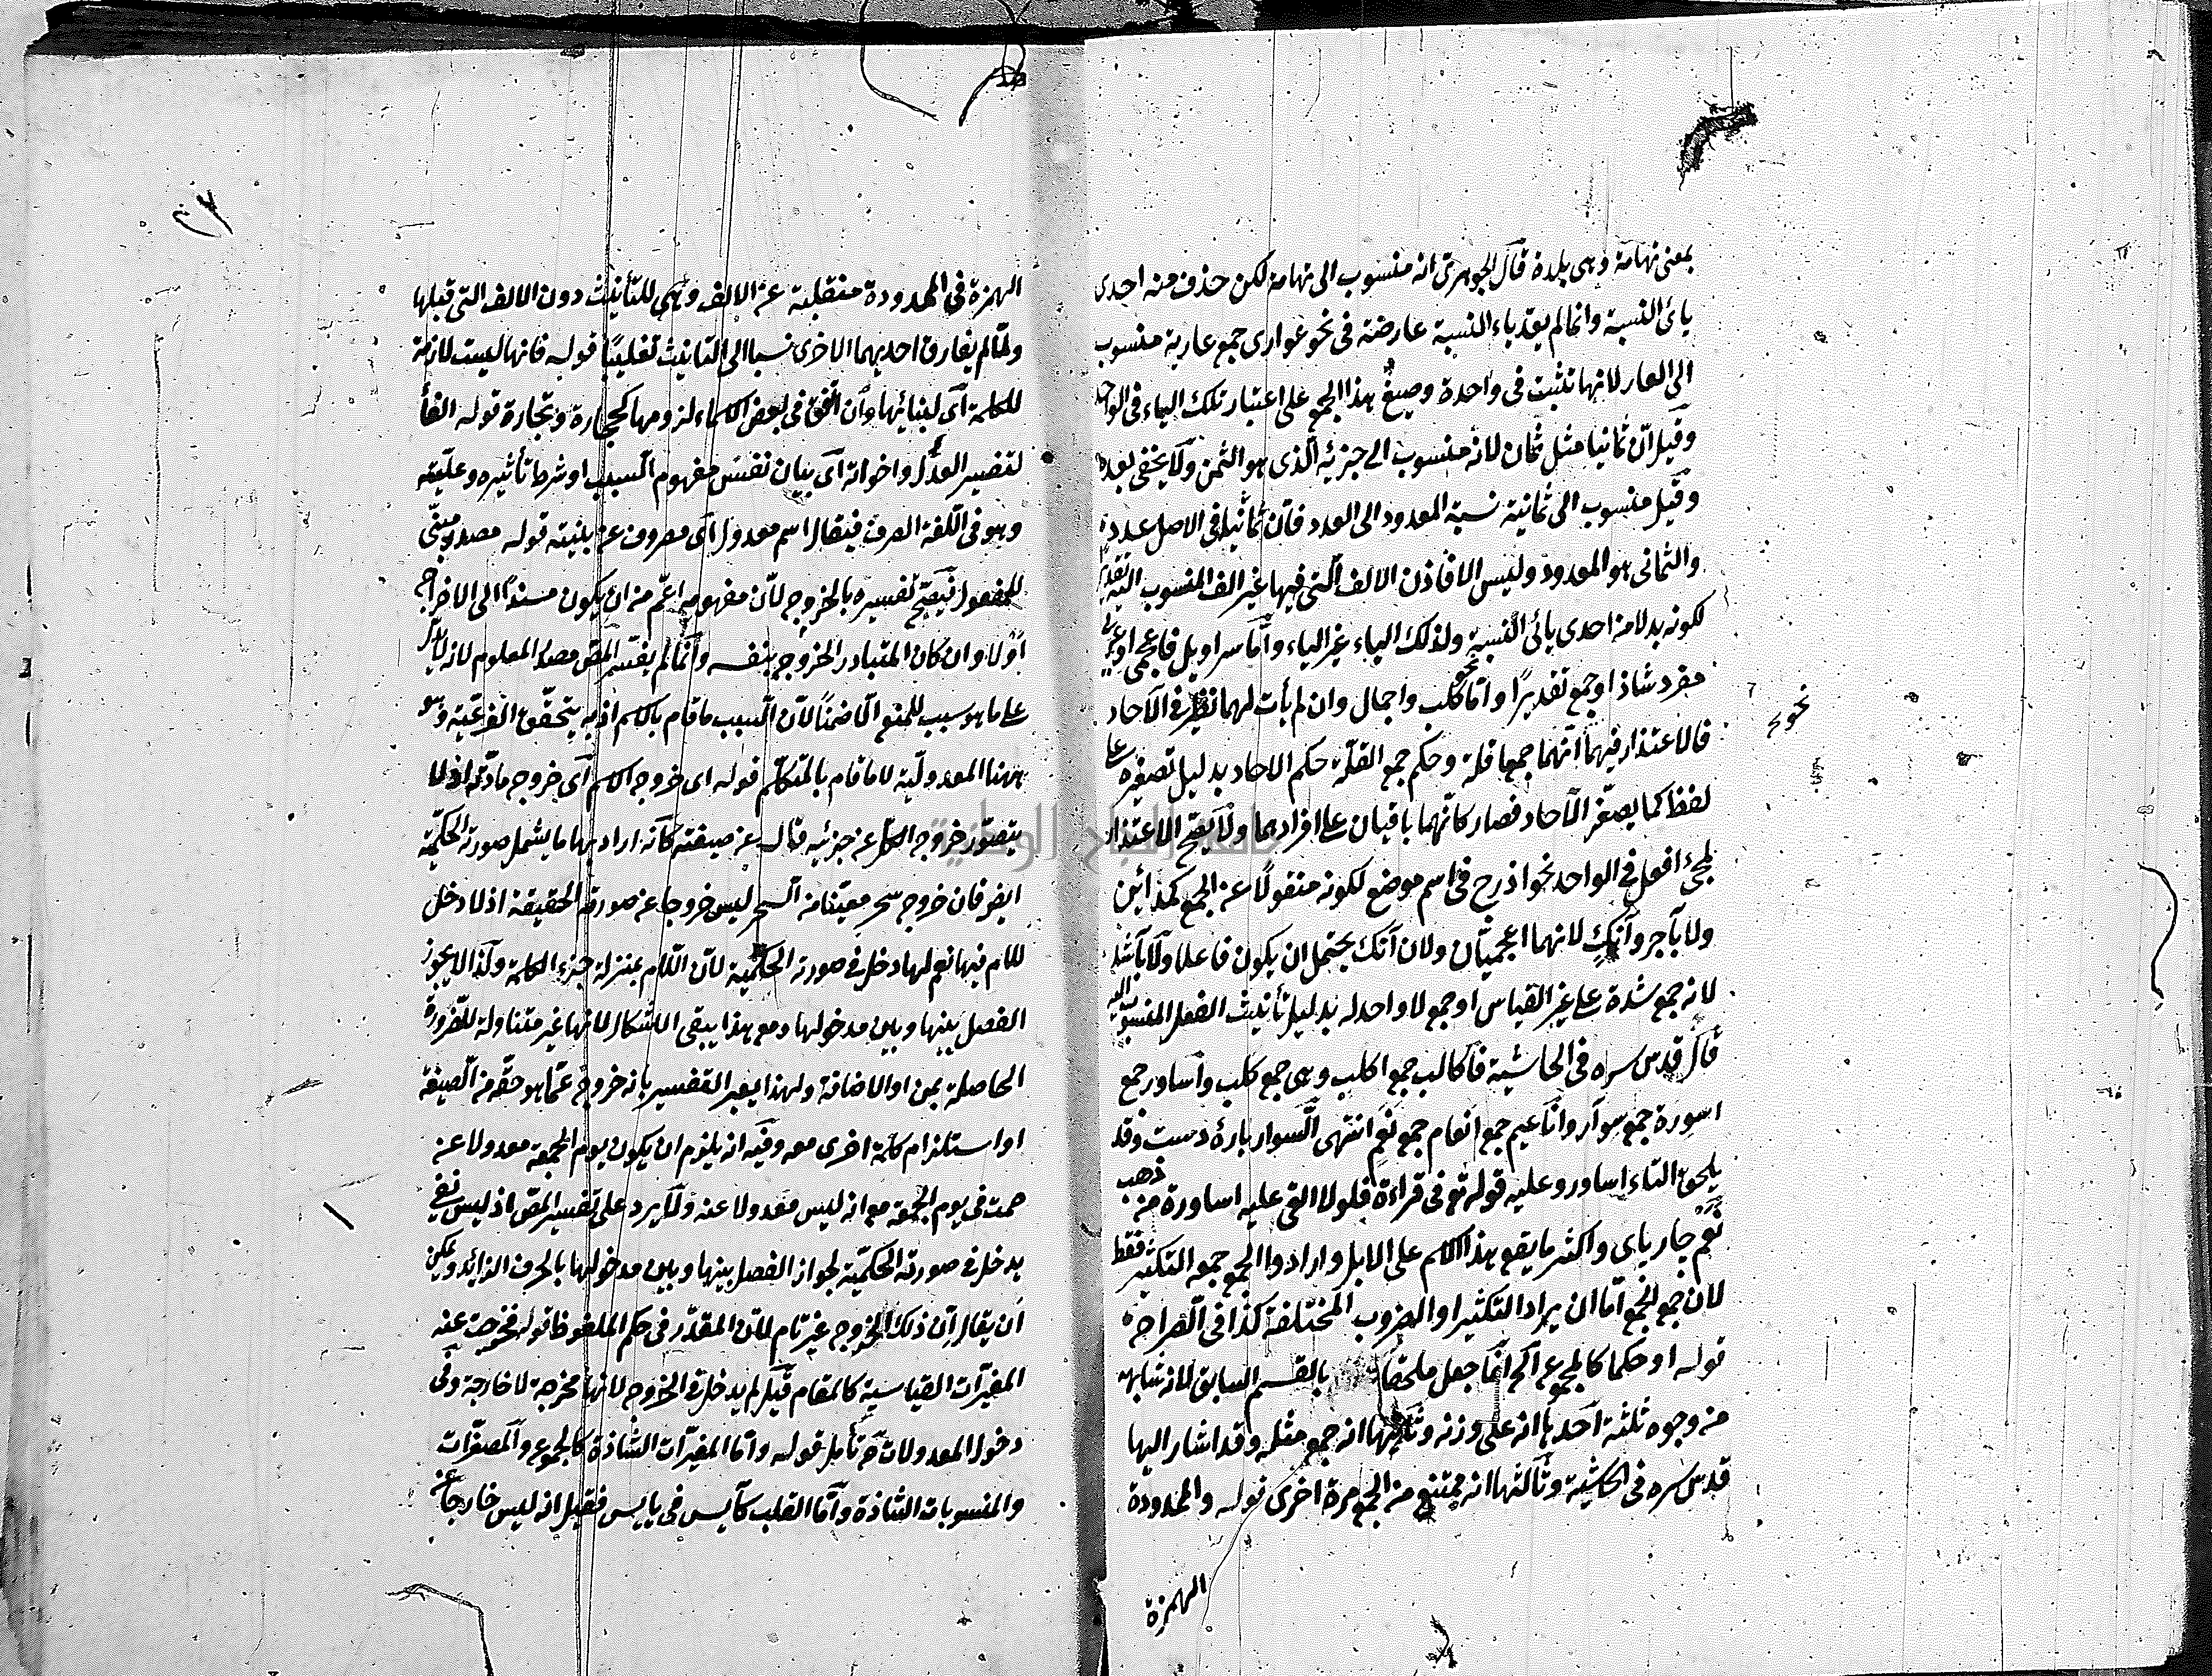 بمعنى تهامة وهى بلدة قال الجوهرى انه منسوب الى تهامة لكن حذف منه احدى
يائى النسبة وانما لم يعد ياء النسبة عارضة فى نحو عوارى جمع عارية منسوب
الى العار لانها تثبت فى واحدة وصيغ هذا الجمع على اعتبار تلك الياء فى الواحد
وقيل ان ثمانيا مثل ثمان لانه منسوب الى جزئيه الذى هو الثمن ولا يخفى بعده
وقيل منسوب الى ثمانية نسبة المعدود الى العدد فان ثمانيا فى الاصل عدد
والثمانى هو المعدود وليس الا فاذن الالف التى فيها غير الف المنسوب اليه تقديرا
لكونه بدلا من احدى يائى النسبة ولذلك الياء غير الياء واما سراويل فاعجمى او عربى
مفرد شاذ او جمع تقديرا واما نحو كلب واجمال وان لم يأت لهما نظير فى الآحاد
فالاعتذار فيهما انهما جمعا قلة وحكم جمع القلة حكم الاحاد بدليل تصغيره على
لفظ كما يصغر الآحاد فصار كانهما باقيان على افرادهما ولا يصح الاعتذار
لمجئ افعل فى الواحد نحو اذرح فى اسم موضع لكونه منقولا عن الجمع كمدائن
ولا بآجر وآنك لانهما اعجميان ولان آنك يحتمل ان يكون فاعلا ولا بأشد
لانه جمع شدة على غير القياس او جمع لا واحد له بدليل تأنيث الفعل المنسوب اليه
قال قدس سره فى الحاشية فاكالب جمع اكلب وهى جمع كلب واساور جمع
اسورة جمع سوار واناعيم جمع انعام جمع نعم انتهى السوار باره دست وقد
يلحق التاء اساور وعليه قوله تع فى قراءة فلولا القى عليه اساورة من ذهب
نعم چارپاى واكثر ما يقع هذا الاسم على الابل وارادوا الجمع جمعه التكثير فقط
لان جمع الجمع اما ان يراد التكثير او الضروب المختلفة كذا فى الصراح
قوله او حكما كالجموع الخ انما جعل ملحقا بالقسم السابق لانه شابهه
من وجوه ثلثة احدها انه على وزنه وثانيها انه جمع مثله وقد اشار اليها
قدس سره فى الحاشية وثالثها انه ممتنع من الجمع مرة اخرى قوله والممدودة
الهمزة
الهمزة فى الممدودة منقلبة عن الالف وهى للتأنيث دون الالف التى قبلها
ولما لم يفارق احديهما الاخرى نسبا الى التانيث تغليبا قوله فانها ليست لازمة
للكلمة اى لبنائها وان اتفق فى بعض الاسماء لزومها كحجارة وتجارة قوله
لتفسير العدل واخواته اى بيان نفس مفهوم السبب او شرط تأثيره وعليته
وهو فى اللغة الصرف فيقال اسم معدول اى مصروف عن بنيته قوله مصدر مبنى
للمفعول فيصح تفسيره بالخروج لان مفهومه اعم من ان يكون مسندا الى الاخراج
اولا وان كان المتبادر الخروج بنفسه وانما لم يفسر المص مصدر المعلوم لانه لا يدل
على ما هو سبب للمنع الا ضمنا لان السبب ما قام بالاسم اذ به يتحقق الفرعية وهو
ههنا المعدولية لا ما قام بالمتكلم قوله اى خروج الاسم اى خروج مادته اذ لا
يتصور خروج الكل عن جزئيه قال عن صيغته كانه اراد بها ما يشمل صورته الحكمية
ايضر فان خروج سحر معينا من السحر ليس خروجا عن صورته الحقيقة اذ لا دخل
للام فيها نعم لها دخل فى صورته الحكمية لان اللام بمنزلة جزء الكلمة ولذا لا يجوز
الفصل بينها وبين مدخولها ومع هذا يبقى الاشكال لانها غير متناولة للضرورة
الحاصلة بمن او الاضافة ولهذا يعبر التفسير بانه خروج عما هو حقه من الصيغة
او استلزام كلمة اخرى معه وفيه انه يلزم ان يكون يوم الجمعة معدولا عن
صمت فى يوم الجمعة مع انه ليس معدولا عنه ولا يرد على تفسير المص اذ ليس لفى
يدخل فى صورته الحكمية لجواز الفصل بينها وبين مدخولها بالحرف الزائد ويمكن
ان يقال ان ذلك الخروج غير تام لان المقدر فى حكم الملفوظ قوله فخرجت عنه
المغيرات القياسية كالمقام قيل لم يدخل فى الخروج لانها مخرجة لا خارجة وفى
دخول المعدولات ثم تأمل قوله واما المغيرات الشاذة كالجموع والمصغرات
والمنسوبات الشاذة واما القلب كآيس فى يايس فقيل انه ليس خارجا عن